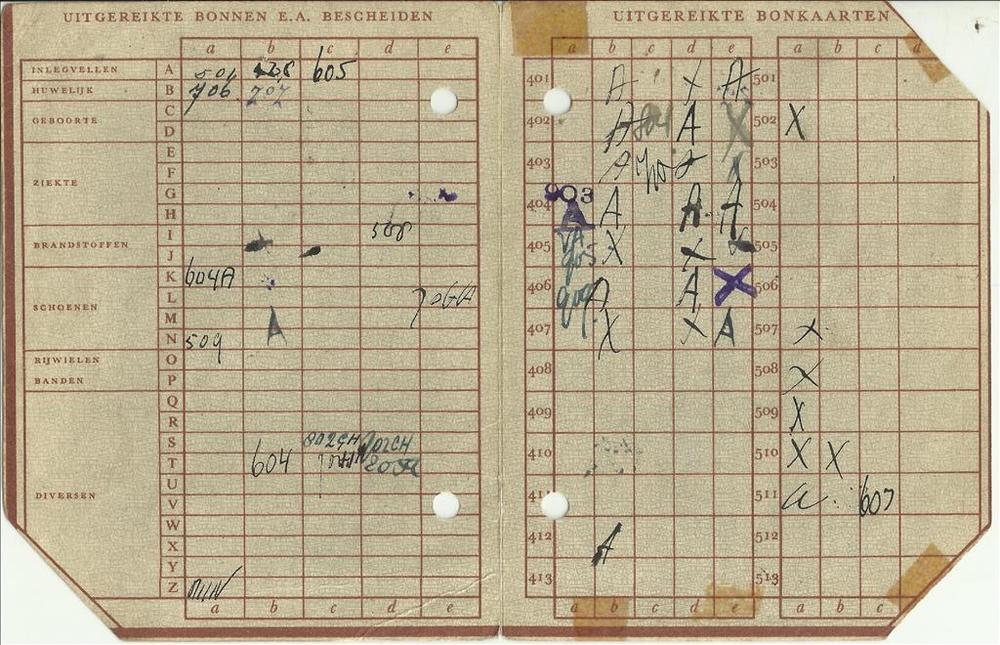 UITGEREIKTE BONNEN E.A. BESCHEIDEN
a b c d e
INLEGVELLEN A 605
HUWELIJK B 706 707
C
GEBOORTE
D
E
F
ZIEKTE
G
H
I 508
BRANDSTOFFEN
J
K 604A
L 706A
SCHOENEN
M A
N 509
RIJWIELEN O
BANDEN P
Q
R
S 802CH 702CH
T 604
U
DIVERSEN V
W
X
Y
Z
a b c d e
UITGEREIKTE BONKAARTEN
a b c d e a b c d
401 A X A 501
402 A A X 502 X
403 503
903
404 A A A A 504
405 905 X X 505
406 909 A A X 506
407 X X A 507 X
408 508 X
409 509 X
410 510 X X
411 511 a 607
412 A 512
413 513
a b c d e a b c